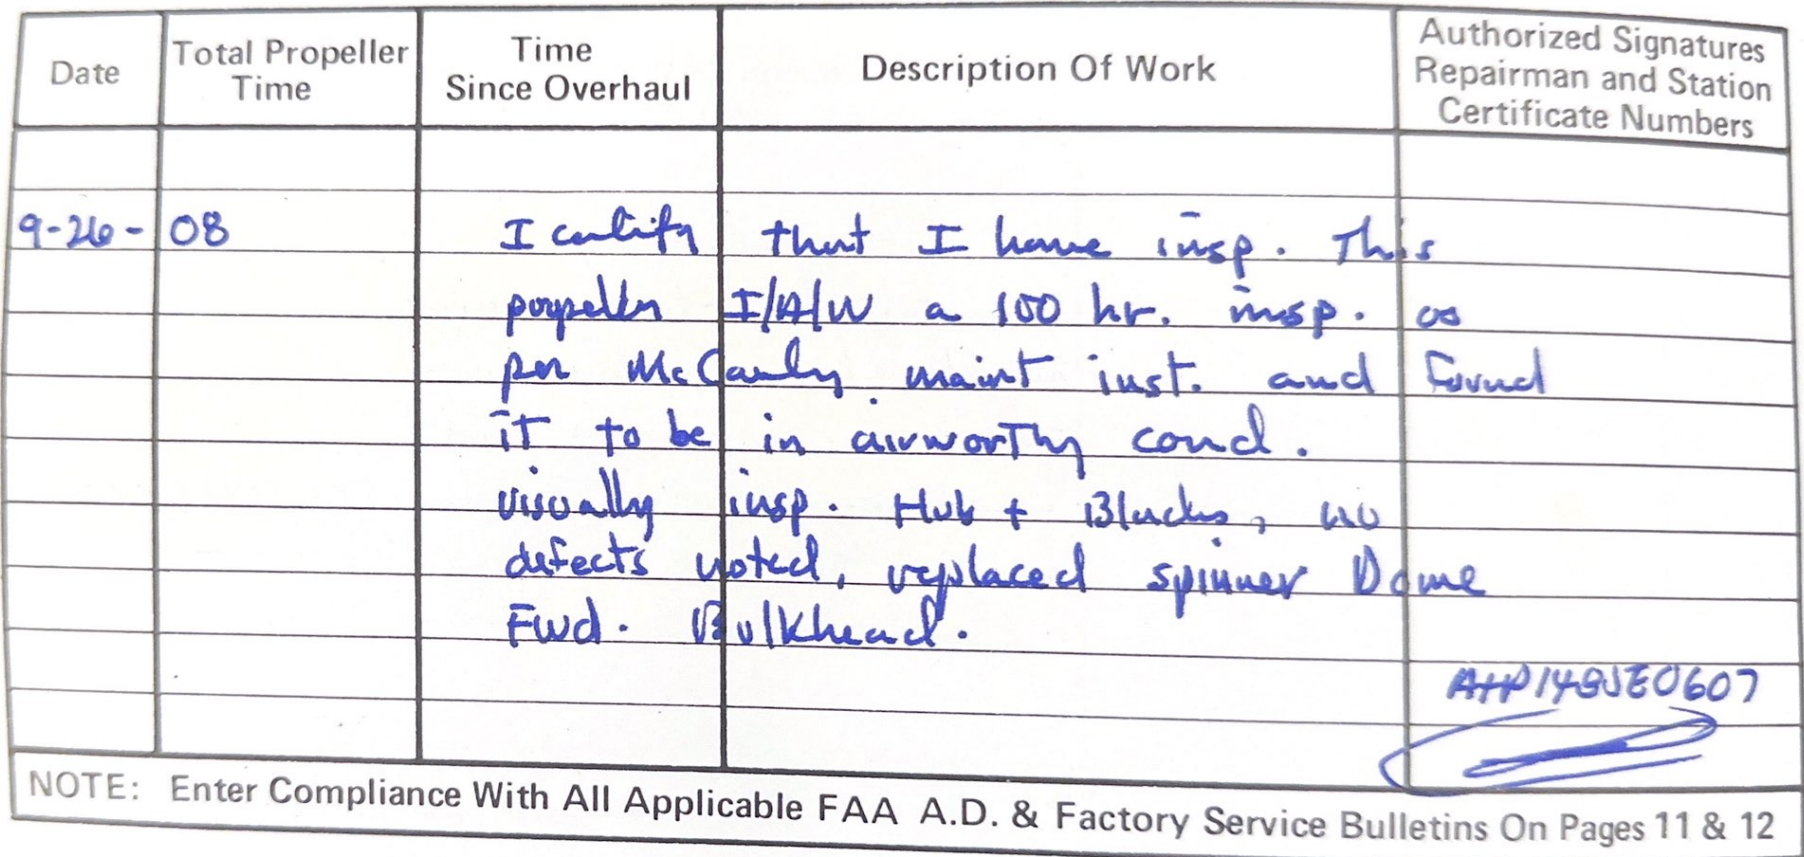 Date
Total Propeller
Time
Time
Since Overhaul
Description Of Work
Authorized Signatures
Repairman and Station
Certificate Numbers
9-26-08 I certify that I have insp. This
propeller I/A/W a 100 hr. insp. as
per McCauly maint inst. and found
it to be in airworthy cond.
visually insp. Hub + Blades, no
defects noted, replaced spinner Dome
Fwd. Bulkhead.
NOTE: Enter Compliance With All Applicable FAA A.D. & Factory Service Bulletins On Pages 11 & 12